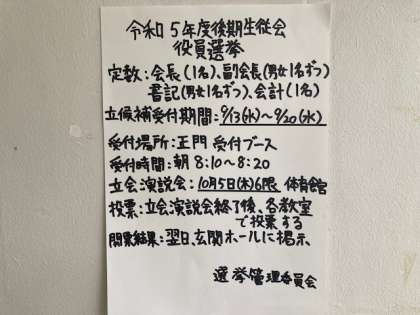 令和5年度後期生徒会
役員選挙
定数：会長(1名)、副会長(男女1名ずつ)
書記(男女1名ずつ)、会計(1名)
立候補受付期間：9/13(水)～9/20(水)
受付場所：正門 受付ブース
受付時間：朝 8:10～8:20
立会演説会：10月5日(木)6限 体育館
投票：立会演説会終了後、各教室
で投票する
開票結果：翌日、玄関ホールに掲示
選挙管理委員会